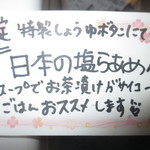 定 特製しょうゆボタンにて
日本の塩らぁめん
スープでお茶漬けがサイコー
ごはんおススメします